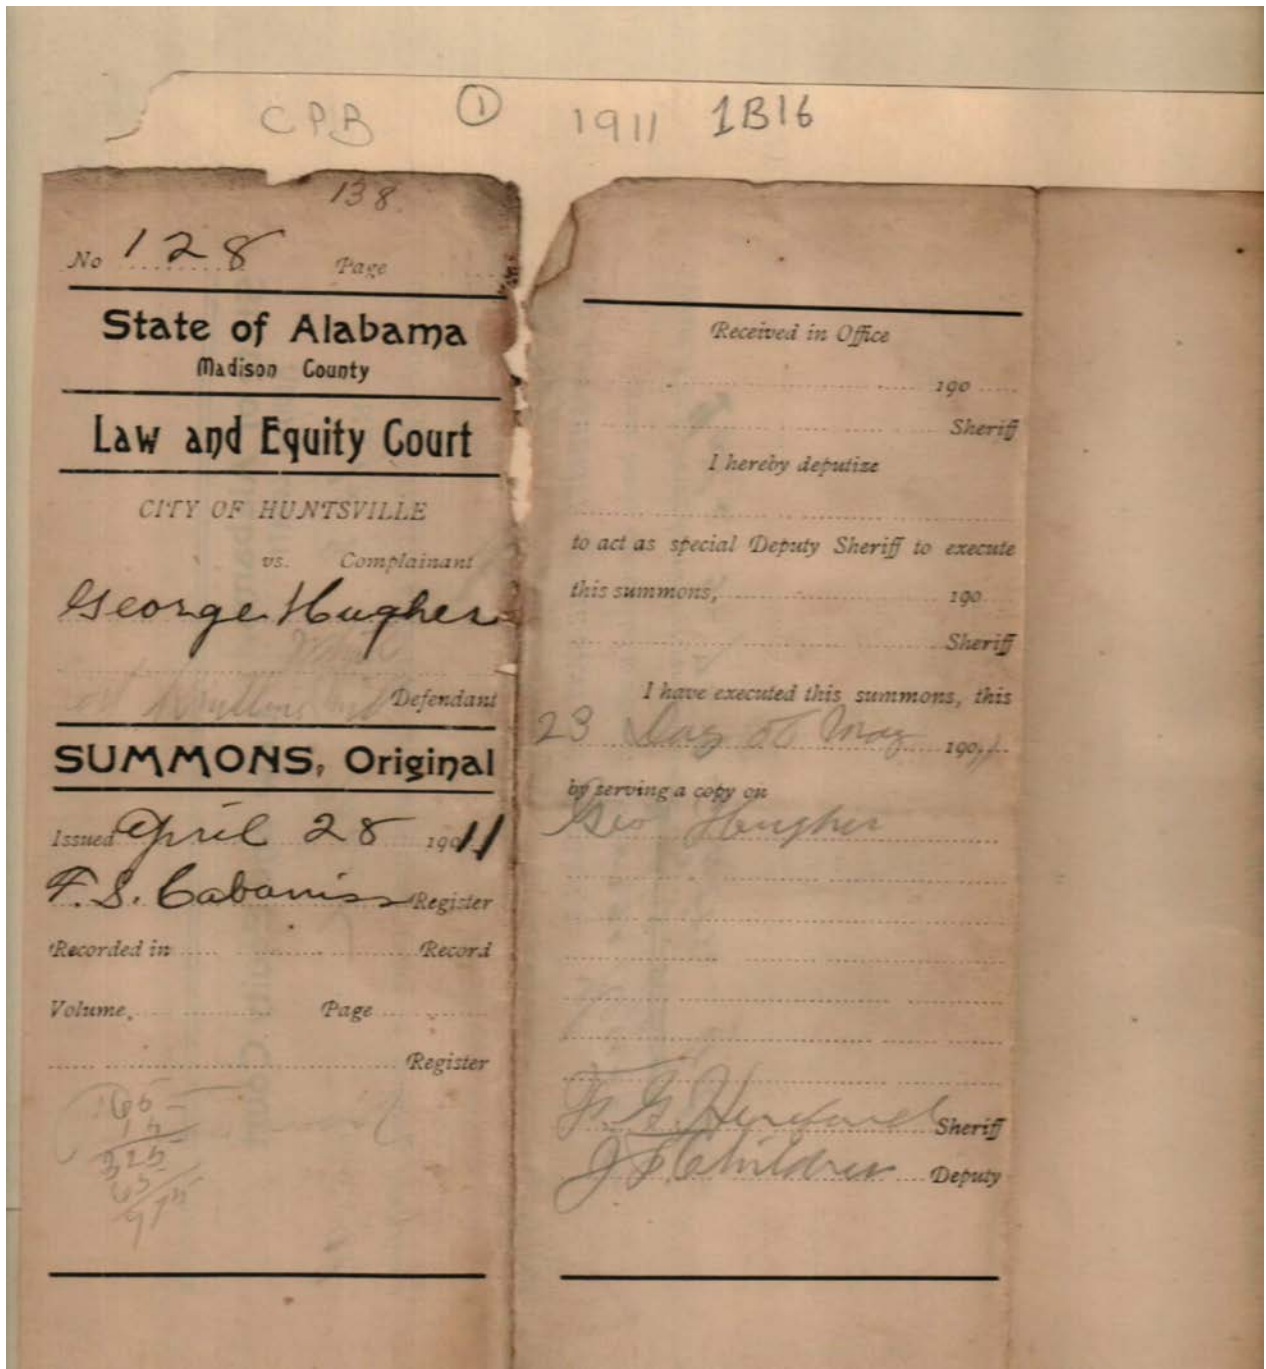 CPB 1 1911 1B16
138
No 128 Page
State of Alabama
Madison County
Law and Equity Court
CITY OF HUNTSVILLE
vs. Complainant
George Hughes
Defendant
SUMMONS, Original
Issued April 28 19011
F. S. Cabaniss Register
Recorded in Record
Volume, Page
Register
65
15
325
65
975
Received in Office
190
Sheriff
I hereby deputize
to act as special Deputy Sheriff to execute
this summons, 190
Sheriff
I have executed this summons, this
23 Day of May 19011
by serving a copy on
Geo Hughes
Sheriff
J Childress Deputy